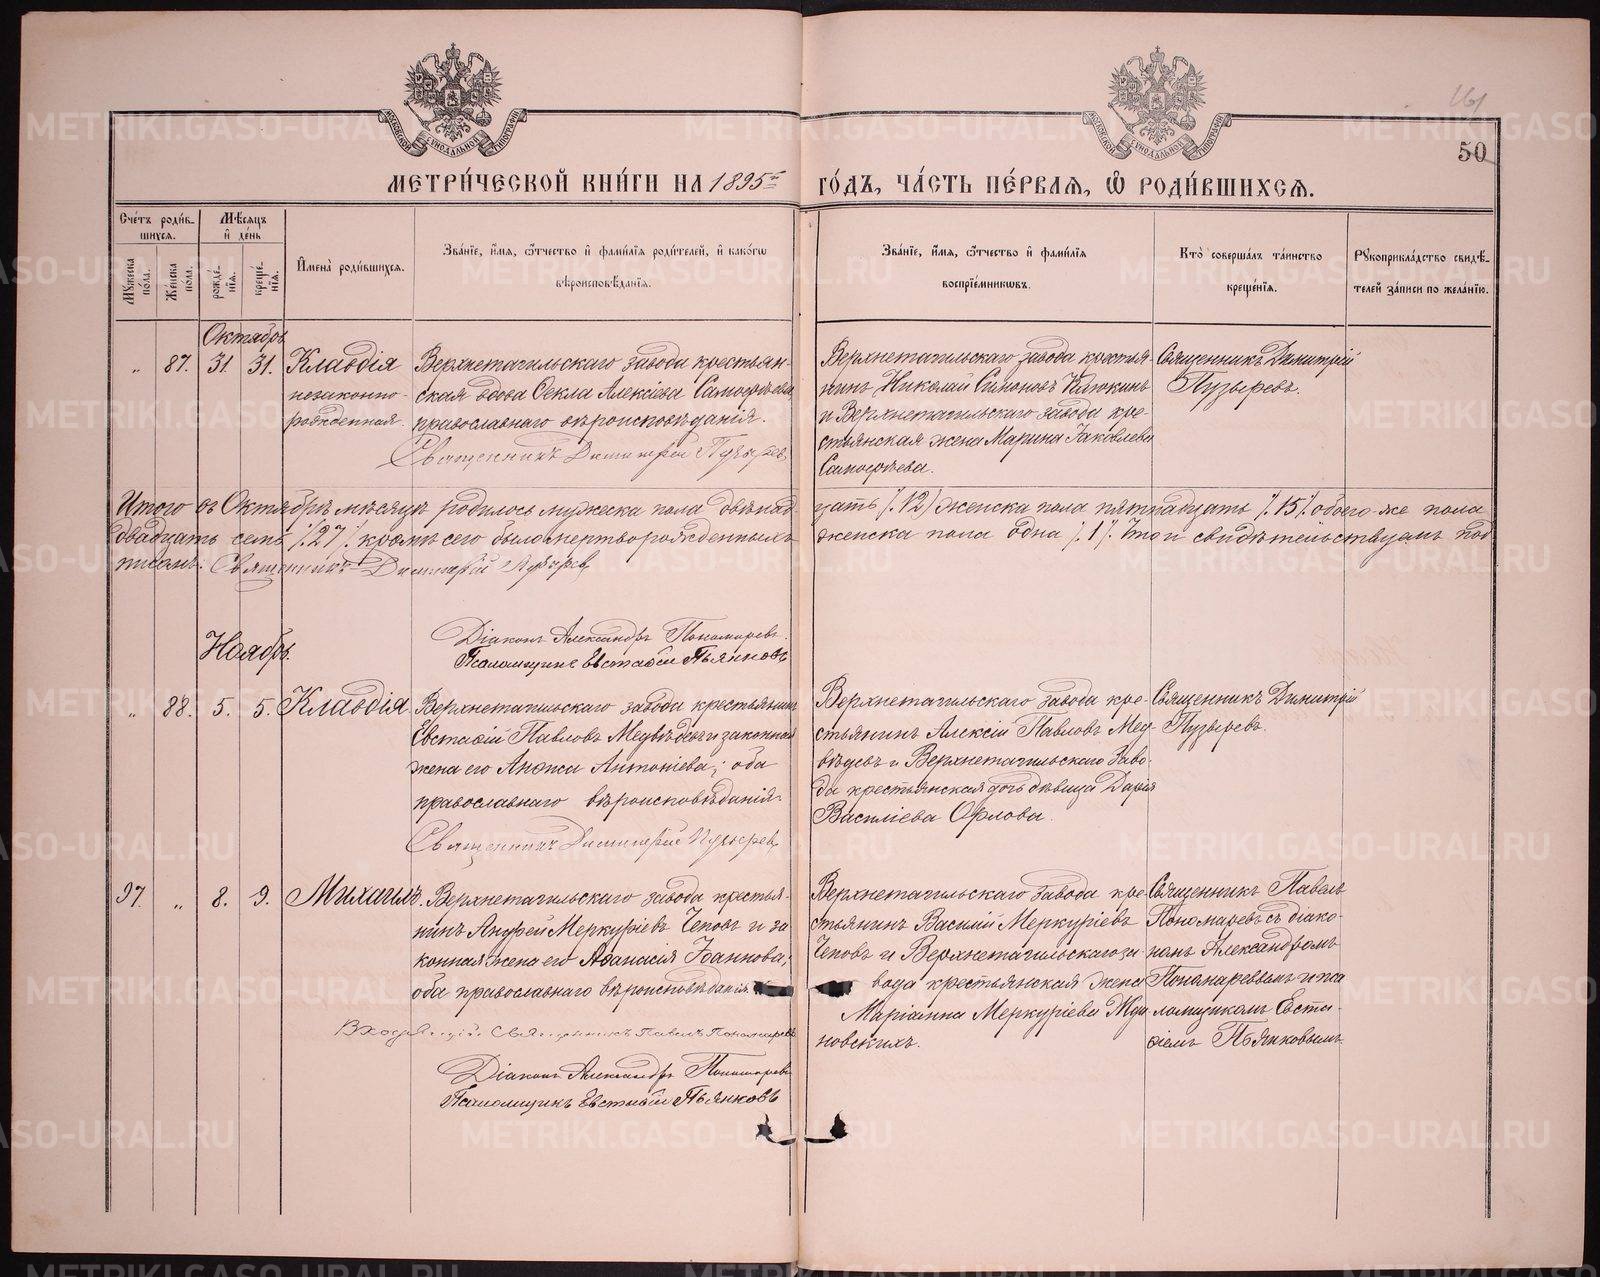 161
50
МОСКОВСКОЙ СѴНОДАЛЬНОЙ ТИПОГРАФІИ
МОСКОВСКОЙ СѴНОДАЛЬНОЙ ТИПОГРАФІИ
МЕТРИ́ЧЕСКОЙ КНИ́ГИ НА 1895й ГО́ДЪ, ЧА́СТЬ ПЕ́РВАѦ, Ѡ҆ РОДИ́ВШИХСѦ.
Сче́тъ роди́в-
шихсѧ.
Мꙋ́жеска
по́ла.
Же́нска
по́ла.
Мѣ́сѧцъ
и҆ де́нь
рожде́-
нїѧ.
креще́-
нїѧ.
И҆мена̀ роди́вшихсѧ.
Зва́нїе, и҆́мѧ, ѻ҆́тчество и҆ фами́лїѧ роди́телей, и҆ како́гѡ
вѣроисповѣ́данїѧ.
Зва́нїе, и҆́мѧ, ѻ҆́тчество и҆ фами́лїѧ
воспрїе́мникѡвъ.
Кто̀ соверша́лъ та́инство
креще́нїѧ.
Рꙋкоприкла́дство свидѣ́-
телей за́писи по жела́нїю.
Октябрь
„ 87. 31. 31. Клавдія
незаконно-
рожденная.
Верхнетагильскаго завода крестьян-
ская вдова Ѳекла Алексіева
православнаго вѣроисповѣданія.
Священникъ Димитрій Пузырев
Верхнетагильскаго завода крестья-
нинъ Николай Симоновъ
и Верхнетагильскаго завода кре-
стьянская жена Марина Іаковлева
Священникъ Димитрій
Пузыревъ.
Итого въ Октябрѣ мѣсяцѣ родилось мужеска пола двѣнад-
цать /.12/ женска пола пятнадцать /.15/. обоего-же пола
двадцать семь /.27/. кромѣ сего было мертворожденныхъ
женска пола одна /.1/. въ чемъ и свидѣтельствуемъ под-
писомъ: Священникъ Димитрій Пузырев
Діаконъ Александръ Пономаревъ.
Псаломщикъ Евстафій Пьянковъ
Ноябрь.
„ 88. 5. 5. Клавдія
Верхнетагильскаго завода крестьянинъ
Евстафій Павловъ Медвѣдевъ и законная
жена его Анфиса Антоніева; оба
православнаго вѣроисповѣданія.
Священникъ Димитрій Пузырев
Верхнетагильскаго завода кре-
стьянинъ Алексій Павловъ Мед-
вѣдевъ и Верхнетагильскаго заво-
да крестьянская дочь дѣвица Дарія
Василіева Орлова.
Священникъ Димитрій
Пузыревъ.
97. „ 8. 9. Михаилъ.
Верхнетагильскаго завода крестья-
нинъ Андрей Меркуріевъ Чеповъ и за-
конная жена его Аѳанасія Іоаннова;
оба православнаго вѣроисповѣданія.
Священникъ Павелъ Пономаревъ
Діаконъ Александръ Пономаревъ
Псаломщикъ Евстафій Пьянковъ
Верхнетагильскаго завода кре-
стьянинъ Василій Меркуріевъ
Чеповъ и Верхнетагильскаго за-
вода крестьянская жена
Маріанна Меркуріева
новскихъ.
Священникъ Павелъ
Пономаревъ съ діако-
номъ Александромъ
Пономаревымъ и пса-
ломщикомъ Евста-
фіемъ Пьянковымъ.
METRIKI.GASO-URAL.RU